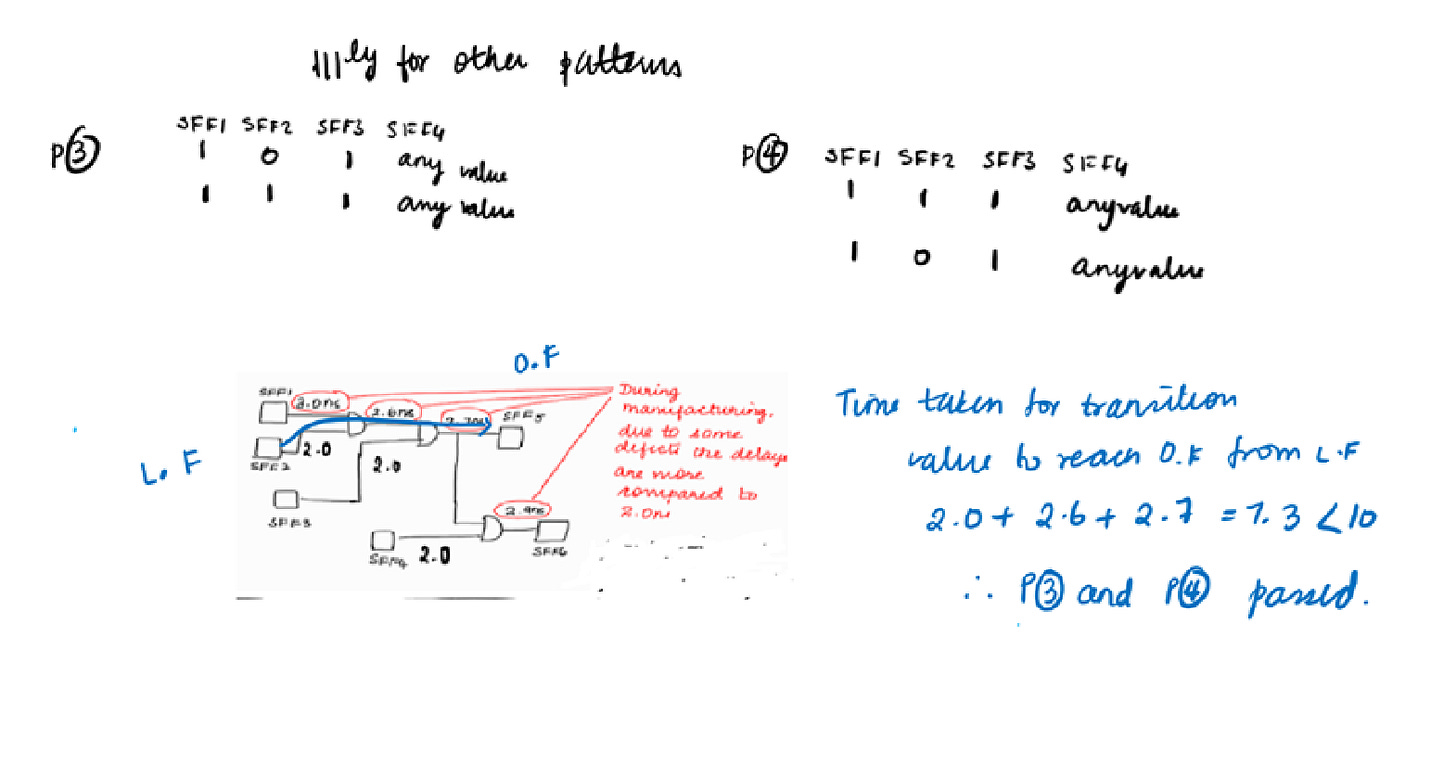 lllly for other patterns
P③ SFF1 SFF2 SFF3 SFF4
1 0 1 any value
1 1 1 any value
P④ SFF1 SFF2 SFF3 SFF4
1 1 1 anyvalue
1 0 1 anyvalue
O.F
L.F
SFF1
3.0ns
2.6ns
2.7ns
SFF5
SFF2
2.0
2.0
SFF3
2.9ns
SFF4
2.0
SFF6
During
manufacturing,
due to some
defects the delays
are more
compared to
2.0ns
Time taken for transition
value to reach O.F from L.F
2.0 + 2.6 + 2.7 = 7.3 < 10
∴ P③ and P④ passed.